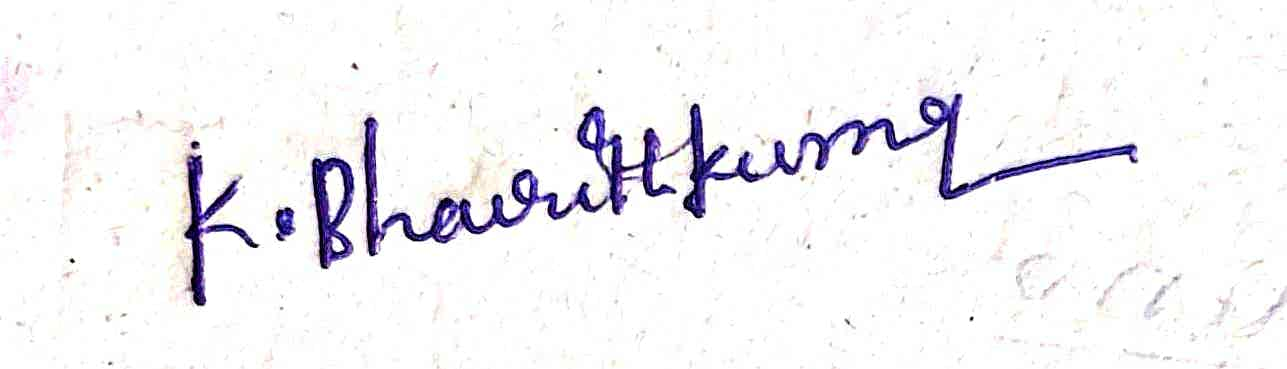 K. Bharathkumar